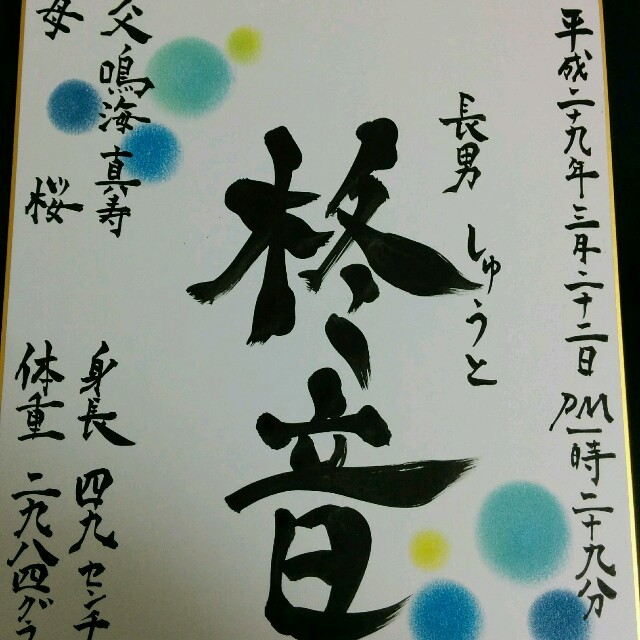 平成二十九年三月二十二日 PM一時二十九分
長男 しゅうと
柊音
父 鳴海真寿
母 桜
身長 四九センチ
体重 二九八四グラ